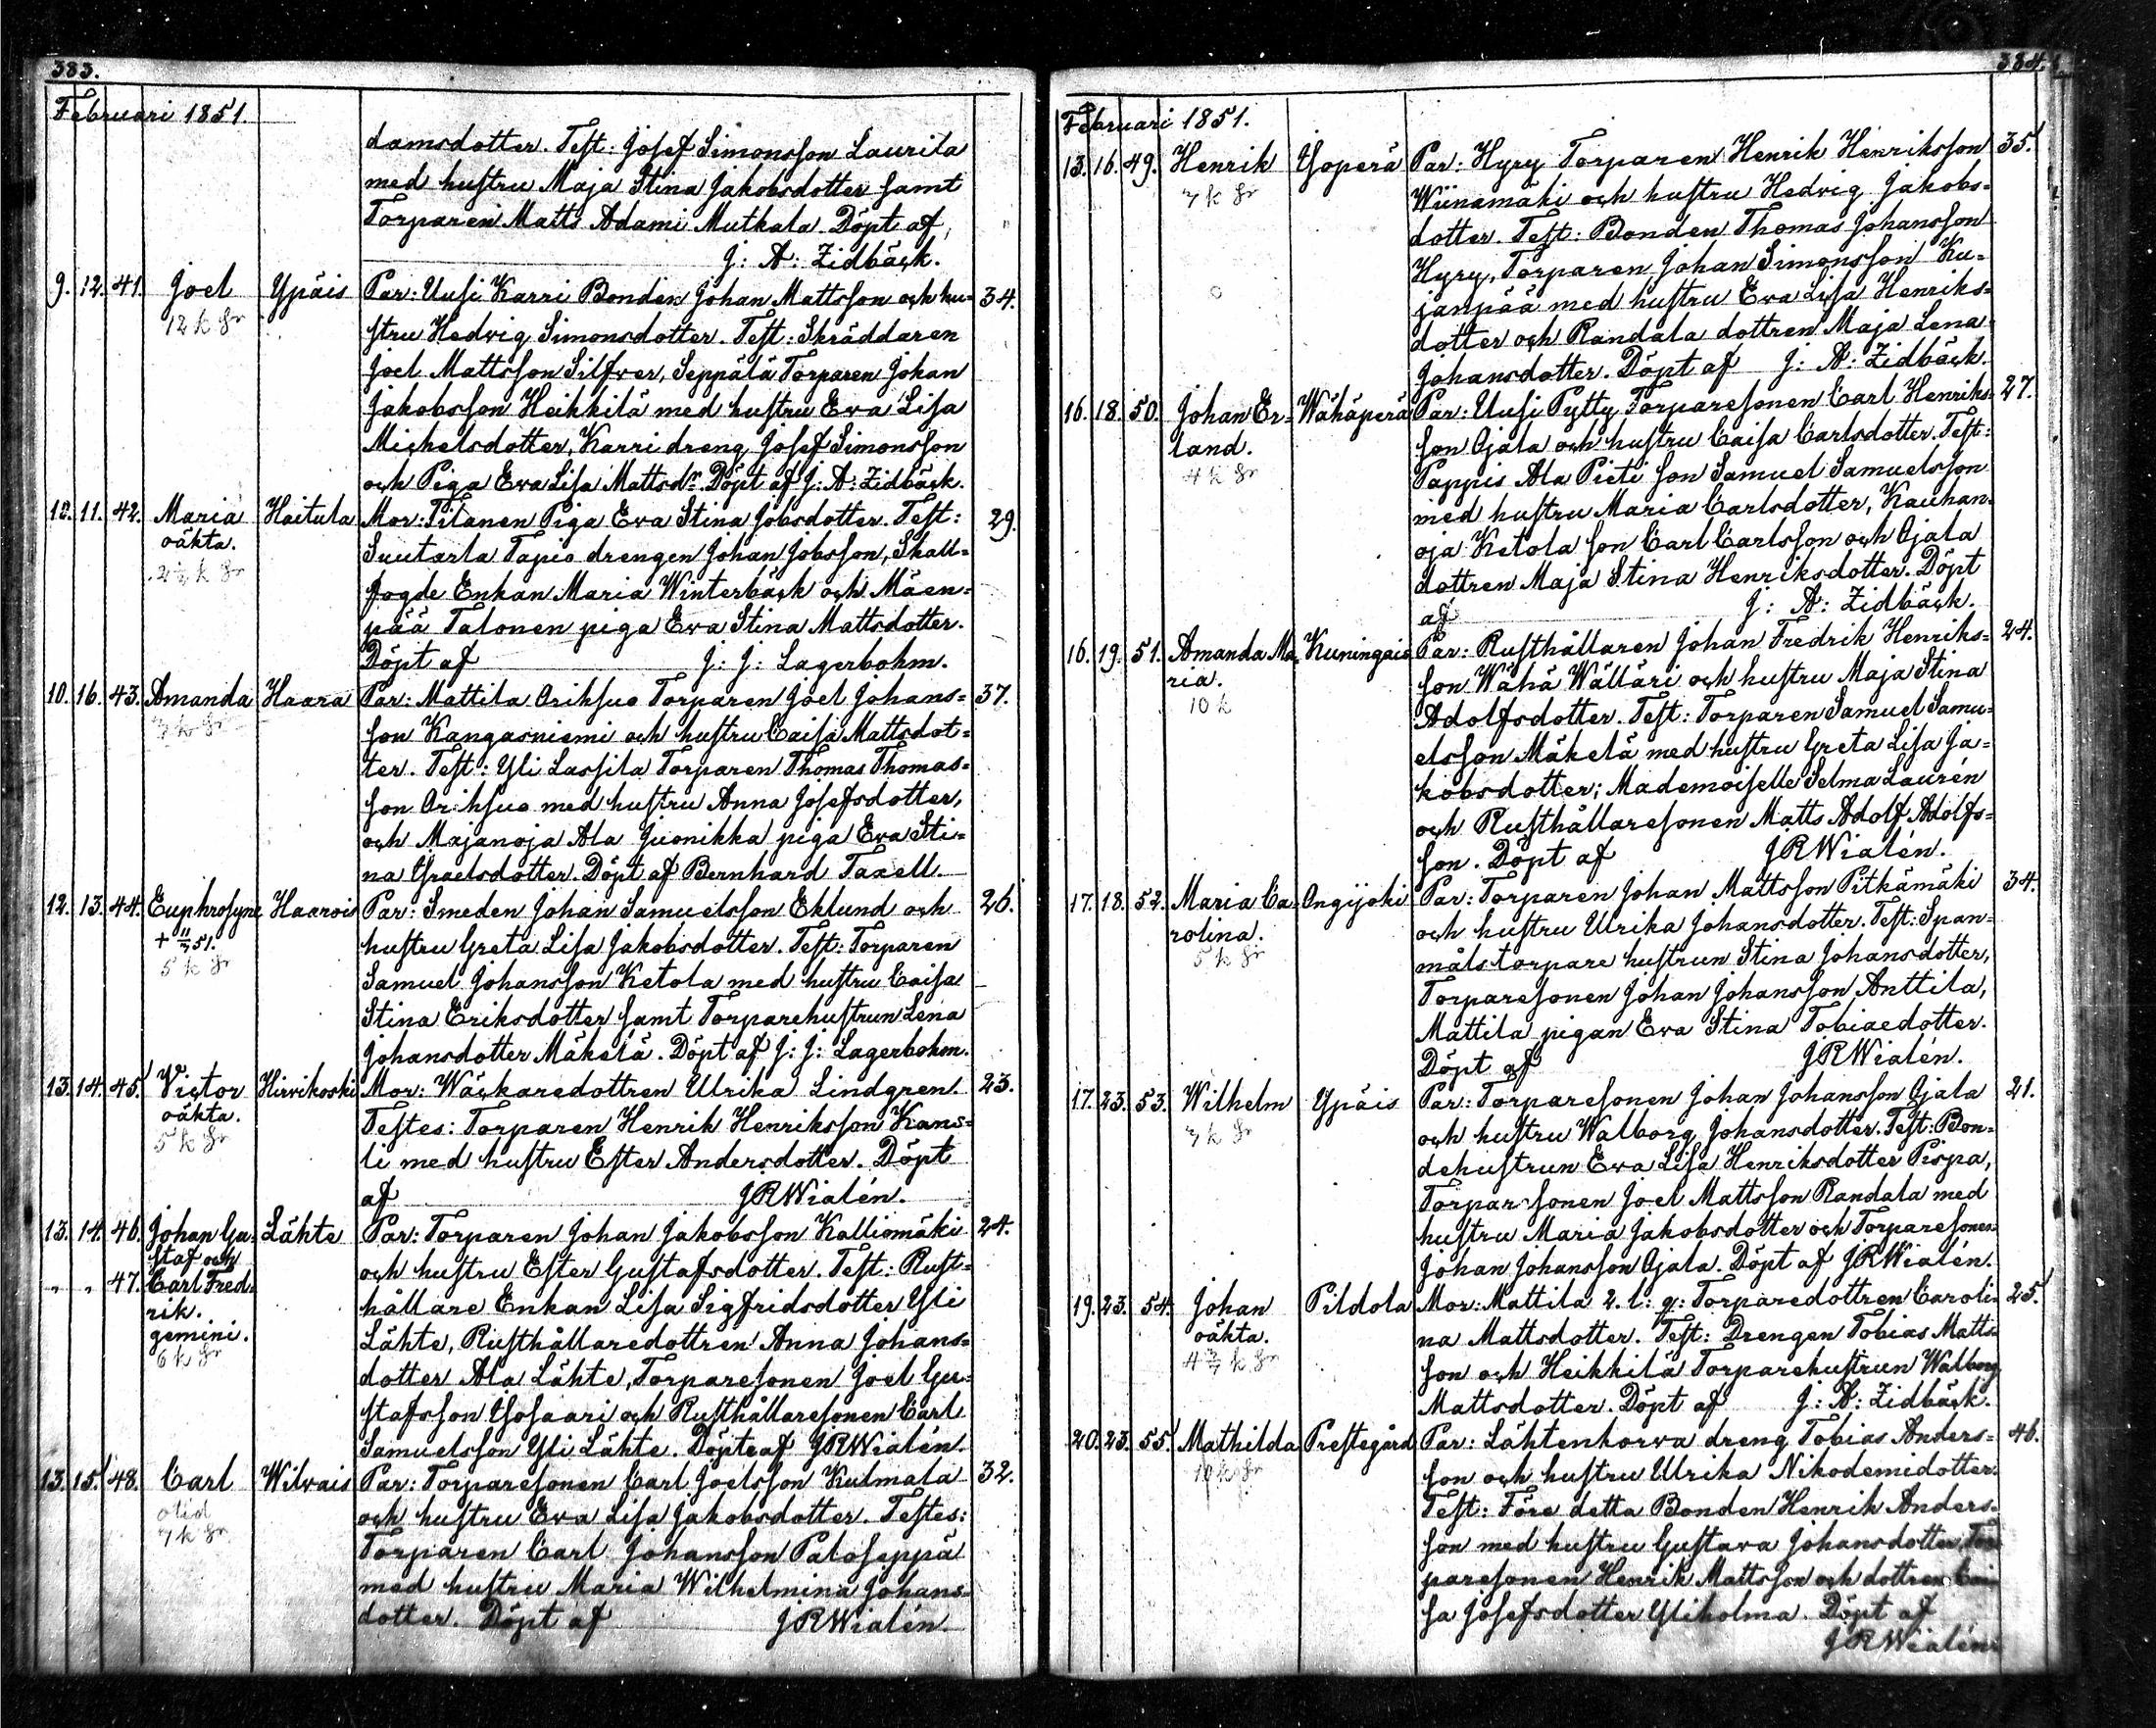 383.
Februari 1851.
damsdotter. Test: Josef Simonsson Laurila
med hustru Maja Stina Jakobsdotter samt
Torparen Matts Adami Mutkala. Döpt af,
J: A: Zidbäck.
9. 12. 41. Joel Ypäis Par: Uusi Karri Bonden Johan Mattsson och hu= 34.
12 k Sr
stru Hedvig Simonsdotter. Test: Skräddaren
Joel Mattsson Silfver, Seppälä Torparen Johan
Jakobsson Heikkilä med hustru Eva Lisa
Michelsdotter, Karri dreng Josef Simonsson
och Piga Eva Lisa Mattsdr. Döpt af J: A: Zidbäck.
10. 11. 42. Maria Haitula Mor: Tilanen Piga Eva Stina Jobsdotter. Test: 29.
oäkta.
Suutarla Tapio drengen Johan Jobsson, Skall=
fogde Enkan Maria Winterbäck och Mäen=
pää Talonen piga Eva Stina Mattsdotter.
Döpt af J: J: Lagerbohm.
10. 16. 43. Amanda Haara Par: Mattila Orihsuo Torparen Joel Johans= 37.
son Kangasniemi och hustru Caisa Mattsdot=
ter. Test: Yli Lassila Torparen Thomas Thomas=
son Orihsuo med hustru Anna Josefsdotter,
och Majanoja Ala Juonikka piga Eva Sti=
na Ysraelsdotter. Döpt af Bernhard Taxell.
12. 13. 44. Euphrosyne Haarois Par: Smeden Johan Samuelsson Eklund och 26.
+ 11/3 51.
5 k Sr
hustru Greta Lisa Jakobsdotter. Test: Torparen
Samuel Johansson Ketola med hustru Caisa
Stina Eriksdotter samt Torparehustrun Lena
Johansdotter Mäkelä. Döpt af J: J: Lagerbohm.
13. 14. 45. Victor Hirvikoski Mor: Wäckaredottren Ulrika Lindgren. 23.
oäkta.
5 k Sr
Testes: Torparen Henrik Henriksson Kans=
li med hustru Ester Andersdotter. Döpt
af JRWialén.
13. 14. 46. Johan Gu= Lähte Par: Torparen Johan Jakobsson Kalliomäki 24.
staf och
och hustru Ester Gustafsdotter. Test: Rust=
„ „ 47. Carl Fred=
rik.
hållare Enkan Lisa Sigfridsdotter Yli
gemini.
6 k Sr
Lähte, Rusthållaredottren Anna Johans=
dotter Ala Lähte, Torparesonen Joel Gu=
stafsson Ysosaari och Rusthållaresonen Carl
Samuelsson Yli Lähte. Döpte af JRWialén.
13. 15. 48. Carl Wilvais Par: Torparesonen Carl Joelsson Kulmala 32.
7 k Sr
och hustru Eva Lisa Jakobsdotter. Testes:
Torparen Carl Johansson Paloseppä
med hustru Maria Wilhelmina Johans=
dotter. Döpt af JRWialén.
384.
Februari 1851.
13. 16. 49. Henrik Ysoperä Par: Hyry Torparen Henrik Henriksson 35.
7 k Sr
Wiinamäki och hustru Hedvig Jakobs=
dotter. Test: Bonden Thomas Johansson
Hyry, Torparen Johan Simonsson Ku=
janpää med hustru Eva Lisa Henriks=
dotter och Randala dottren Maja Lena
Johansdotter. Döpt af J: A: Zidbäck.
16. 18. 50. Johan Er= Wähäperä Par: Uusi Pytty Torparesonen Carl Henriks= 27.
land.
4 k Sr
son Ojala och hustru Caisa Carlsdotter. Test:
Pappis Ala Pieti son Samuel Samuelsson
med hustru Maria Carlsdotter, Kauhan=
oja Ketola son Carl Carlsson och Ojala
dottren Maja Stina Henriksdotter. Döpt
af J: A: Zidbäck.
16. 19. 51. Amanda Ma= Kuningais Par: Rusthållaren Johan Fredrik Henriks= 24.
ria.
10 k
son Wähä Wälläri och hustru Maja Stina
Adolfsdotter. Test: Torparen Samuel Samu=
elsson Mäkelä med hustru Greta Lisa Ja=
kobsdotter; Mademoiselle Selma Laurén
och Rusthållaresonen Matts Adolf Adolfs=
son. Döpt af JRWialén.
17. 18. 52. Maria Ca= Ongijoki Par: Torparen Johan Mattsson Pitkämäki 34.
rolina.
5 k Sr
och hustru Ulrika Johansdotter. Test: Span=
måls torpare hustrun Stina Johansdotter,
Torparesonen Johan Johansson Anttila,
Mattila pigan Eva Stina Tobiaedotter.
Döpt af JRWialén.
17. 23. 53. Wilhelm Ypäis Par: Torparesonen Johan Johansson Ojala 21.
3 k Sr
och hustru Walborg Johansdotter. Test: Bon=
dehustrun Eva Lisa Henriksdotter Pispa,
Torparsonen Joel Mattsson Randala med
hustru Maria Jakobsdotter och Torparesonen
Johan Johansson Ojala. Döpt af JRWialén.
19. 23. 54. Johan Pildola Mor: Mattila 2. l: g: Torparedottren Caroli= 25.
oäkta.
na Mattsdotter. Test: Drengen Tobias Matts=
son och Heikkilä Torparehustrun Walborg
Mattsdotter. Döpt af J: A: Zidbäck.
20. 23. 55. Mathilda Prestegård Par: Lähtenkorva dreng Tobias Anders= 46.
son och hustru Ulrika Nikodemidotter.
Test: Före detta Bonden Henrik Anders=
son med hustru Gustava Johansdotter, Tor=
paresonen Henrik Mattsson och dottren Cai=
sa Josefsdotter Yliholma. Döpt af
JRWialén.